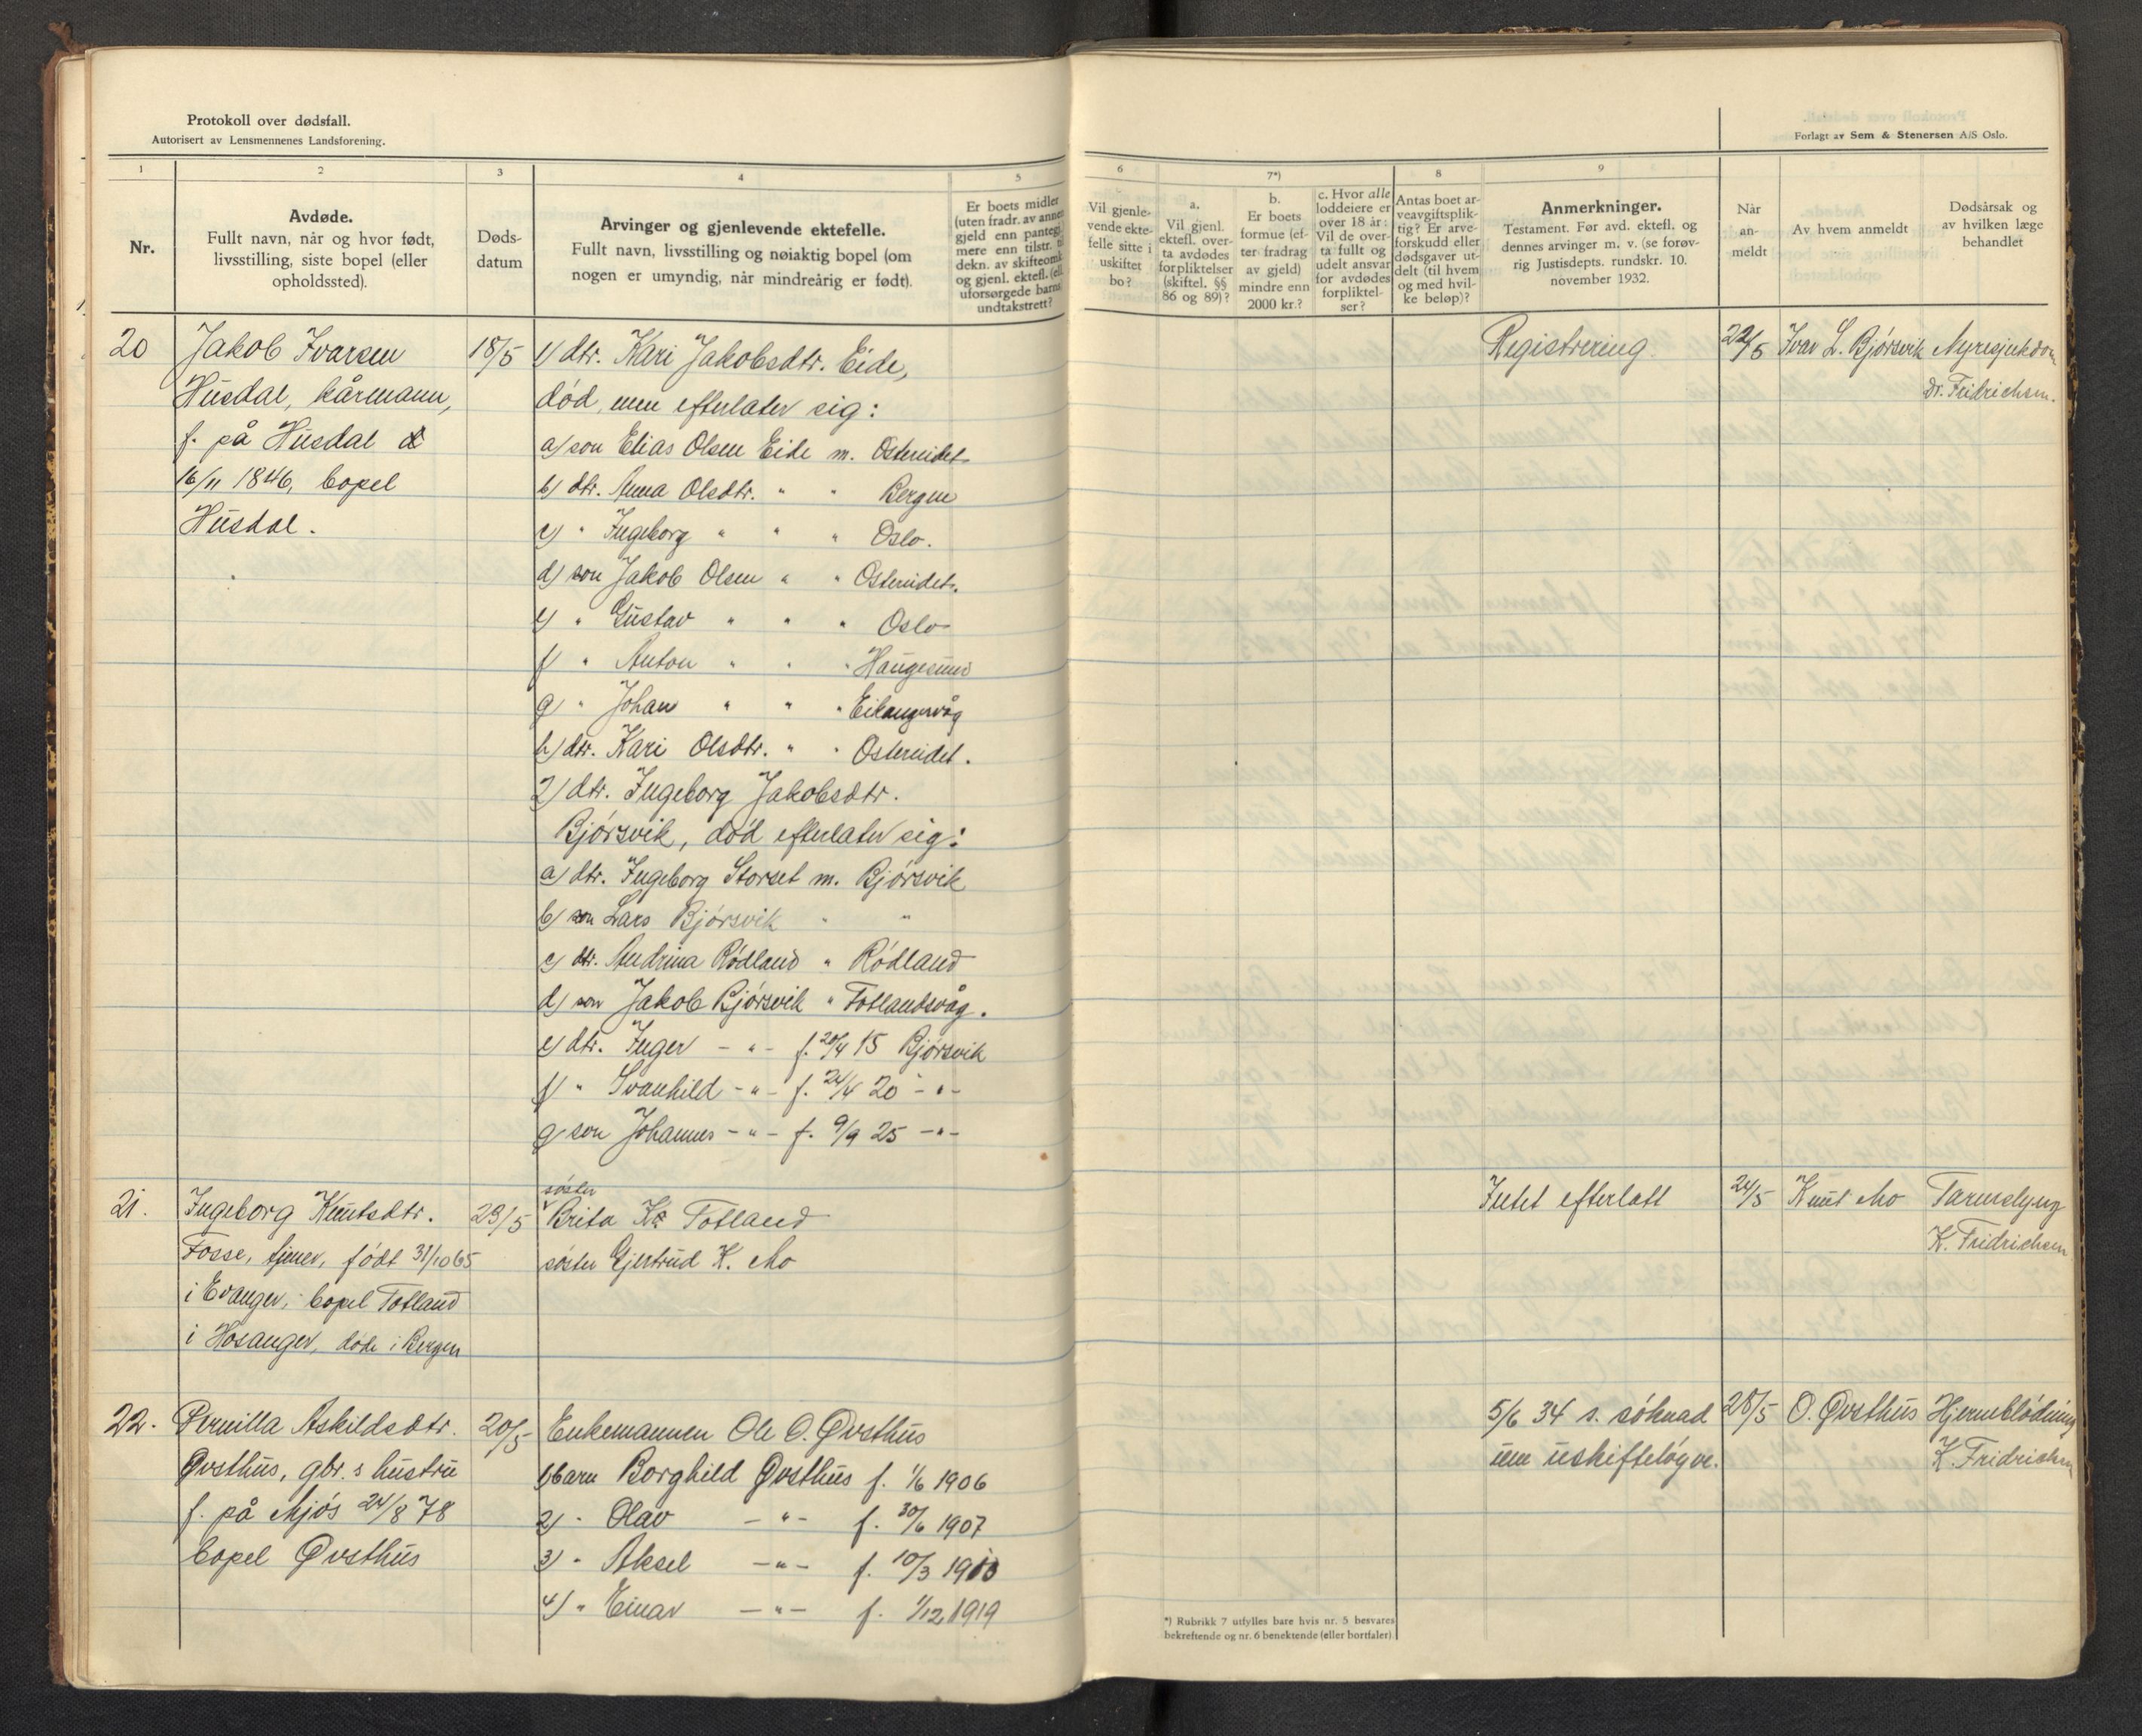 Protokoll over dødsfall.
Autorisert av Lensmennenes Landsforening.
Forlagt av Sem & Stenersen A/S Oslo.
1
2
3
4
5
6
7*)
8
9
Nr.
Avdøde.
Fullt navn, når og hvor født,
livsstilling, siste bopel (eller
opholdssted).
Døds-
datum
Arvinger og gjenlevende ektefelle.
Fullt navn, livsstilling og nøiaktig bopel (om
nogen er umyndig, når mindreårig er født).
Er boets midler
(uten fradr. av annen
gjeld enn pantegj.
mere enn tilstr. til
dekn. av skifteomk.
og gjenl. ektef. (ell.
uforsørgede barns
undtakstrett?
Vil gjenle-
vende ekte-
felle sitte i
uskiftet
bo?
a.
Vil gjenl.
ektefl. over-
ta avdødes
forpliktelser
(skiftel. §§
86 og 89)?
b.
Er boets
formue (ef-
ter fradrag
av gjeld)
mindre enn
2000 kr.?
c. Hvor alle
loddeiere er
over 18 år:
Vil de over-
ta fullt og
udelt ansvar
for avdødes
forpliktel-
ser?
Antas boet ar-
veavgiftsplik-
tig? Er arve-
forskudd eller
dødsgaver ut-
delt (til hvem
og med hvil-
ke beløp)?
Anmerkninger.
Testament. Før avd. ektefl. og
dennes arvinger m. v. (se forøv-
rig Justisdepts. rundskr. 10.
november 1932.
Når
an-
meldt
Av hvem anmeldt
Dødsårsak og
av hvilken læge
behandlet
20
Jakob Ivarsen
Husdal, kårmann,
f. på Husdal
16/11 1846, bopel
Husdal.
18/5
1) dtr. Kari Jakobsdtr. Eide,
död, men efterlater sig:
a) son Elias Olsen Eide m. Ostereidet
b) dtr. Anna Olsdtr. " " Bergen
c) " Ingeborg " " " Oslo.
d) son Jakob Olsen " " Ostereidet.
e) " Gustav " " " Oslo
f) " Anton " " " Haugesund
g) " Johan " " " Eikangervåg
h) dtr. Kari Olsdtr. " " Ostereidet.
2) dtr. Ingeborg Jakobsdtr.
Bjórsvik, död efterlater sig:
a) dtr. Ingeborg Storset m. Bjórsvik
b) son Lars Bjórsvik " "
c) dtr. Andrina Ródland " Ródland
d) son Jakob Bjórsvik " Totlandsvåg.
e) dtr. Inger - " - f. 20/4 15 Bjórsvik
f) " Svanhild - " - f. 24/4 20 - " -
g son Johannes - " - f. 9/9 25 - " -
Registrering.
22/5
Ivar L. Bjórsvik
Nyresjukdom
dr. Fridrichsen.
21.
Ingeborg Knutsdtr.
Fosse, tjener, födt 31/10 65
i Evanger, bopel Totland
i Hosanger, döde i Bergen
23/5
söster
Brita K. Totland
söster Gjertrud K. Mo
Intet efterlatt
24/5
Knut Mo
Tarmslyng
K. Fridrichsen
22.
Pernilla Askildsdtr.
Qvsthus, gbr.s hustru
f. på Mjós 24/8 78
bopel Øvsthus
20/5
Enkemannen Ole O. Øvsthus
1) barn Borghild Øvsthus f. 1/6 1906
2) " Olav - " - f. 30/6 1907
3) " Aksel - " - f. 10/3 1910
4) " Einar - " - f. 1/12 1919
5/6 34 s. söknad
um uskiftelógve.
28/5
O. Øvsthus
Hjerneblödning
K. Fridrichsen
*) Rubrikk 7 utfylles bare hvis nr. 5 besvares
bekreftende og nr. 6 benektende (eller bortfaler)